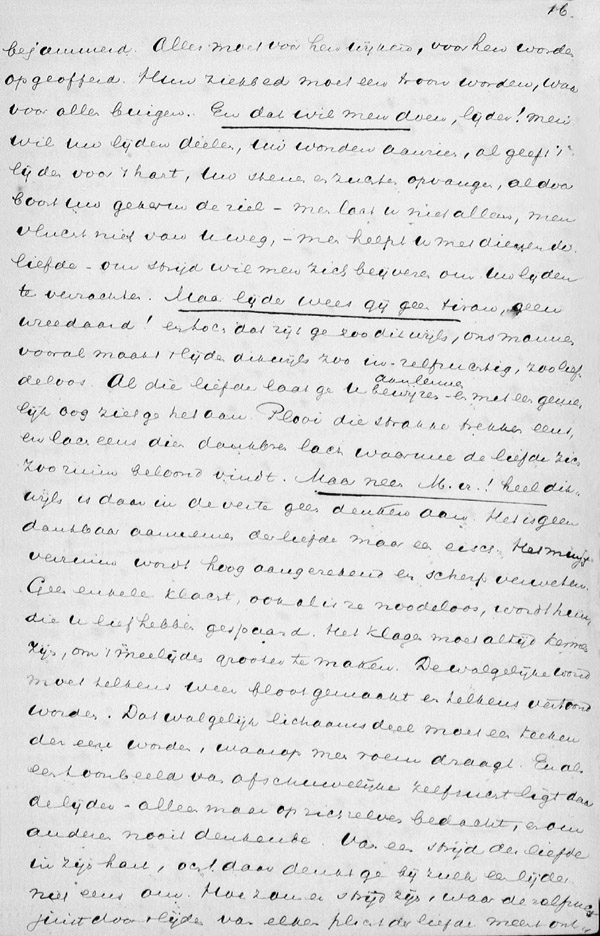 16.
bejammerd. Alles moet voor hen wijken, voor hen worden
opgeofferd. Hun ziekbed moet een troon worden, waar
voor allen buigen. En dat wil men doen, lijder! men
wil uw lijden deelen, uw wonden aanzien, al geeft 't
lijden voor 't hart, uw stenen en zuchten opvangen, al door
boort uw gekerm de ziel – men laat u niet alleen, men
vlucht niet van u weg, – men helpt u met dienende
liefde – om strijd wil men zich beijveren om uw lijden
te verzachten. Maar lijder wees gij geen tiran, geen
wreedaard! en toch dat zijt ge zoo dikwijls, ons mannen
vooral maakt lijden dikwijls zoo in-zelfzuchtig, zoo lief-
deloos. Al die liefde laat ge u aanleunen bewijzen en met een gemelijk
lijk oog ziet ge het aan. Plooi die strakke trekken eens,
en lach eens dien dankbren lach waarmee de liefde zich
zoo ruim beloond vindt. Maar neen M. er.! heel dik-
wijls is daar in de verte geen denken aan. Het is geen
dankbaar aannemen der liefde maar een eisch. Het minste
verzuim wordt hoog aangerekend en scherp verweten.
Geen enkele klacht, ook al is ze noodeloos, wordt hun,
die u lief hebben gespaard. Het klagen moet altijd kermen
zijn, om 't meelijden grooter te maken. De walgelijke wond
moet telkens weer bloot gemaakt en telkens vertoond
worden. Dat walgelijk lichaamsdeel moet een teeken
der eere worden, waarop men roem draagt. En als
een toonbeeld van afschuwelijke zelfzucht ligt daar
de lijder – alleen maar op zich zelven bedacht, en om
anderen nooit denkende. Van een strijd der liefde
in zijn hart, och daar denkt ge bij zulk een lijder
niet eens om. Hoe zou er strijd zijn, waar de zelfzucht
juist door 't lijden van elken plicht der liefde meent ont-